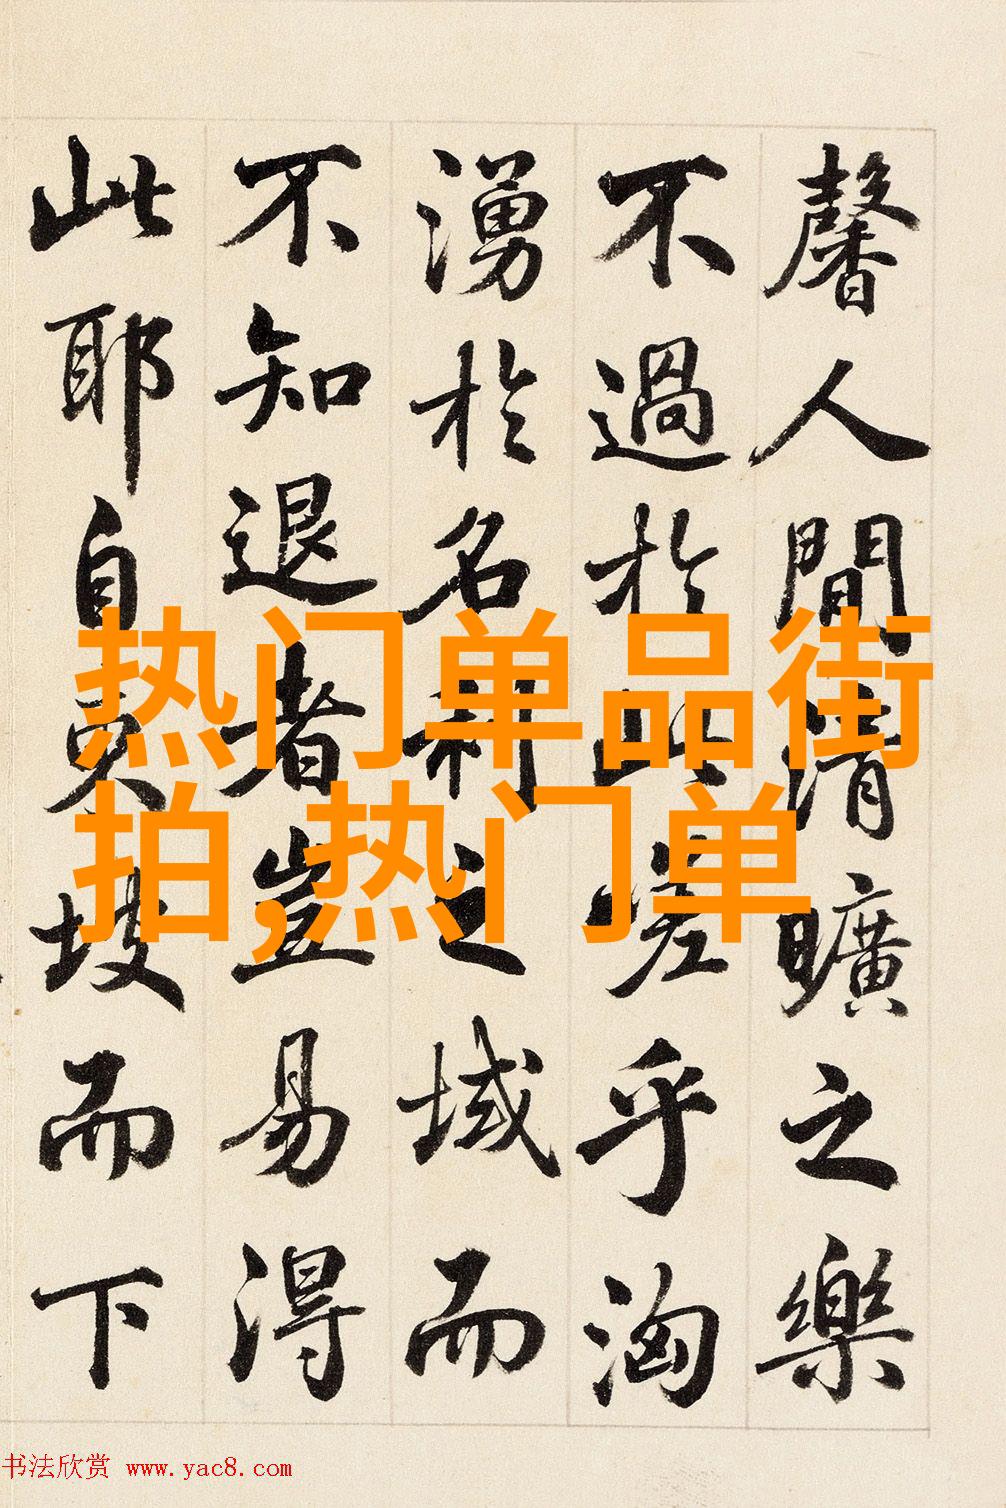 馨人間清曠之樂
不過於此嗟乎洶
湧於名利之域而
不知退者豈易得
此耶自坡而下
热门单品街
拍,热门单
书法欣赏 www.yac8.com